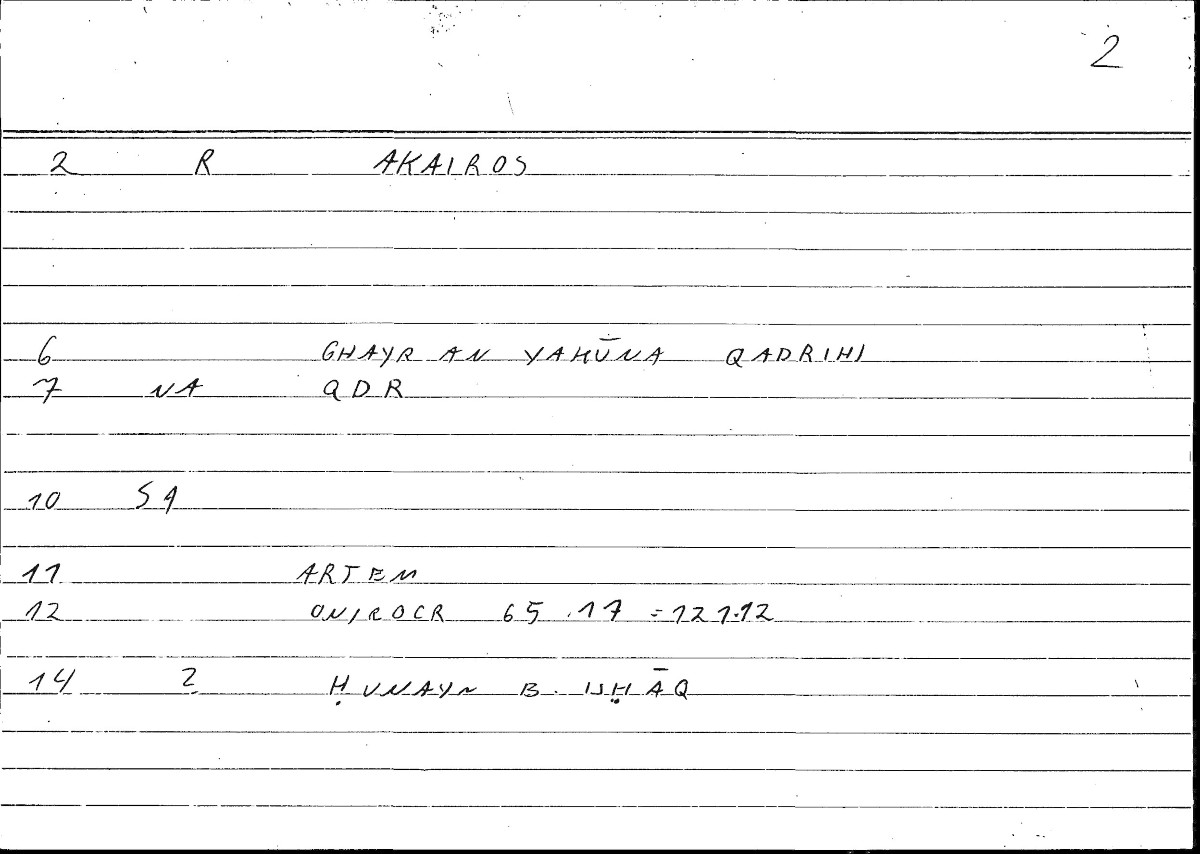 2
2 R AKAIROS
6 GHAYR AN YAKŪNA QADRIHI
7 NA QDR
10 S9
11 ARTEM
12 ONIROCR 65.17 = 121.12
14 2 ḤUNAYN B. ISḤĀQ